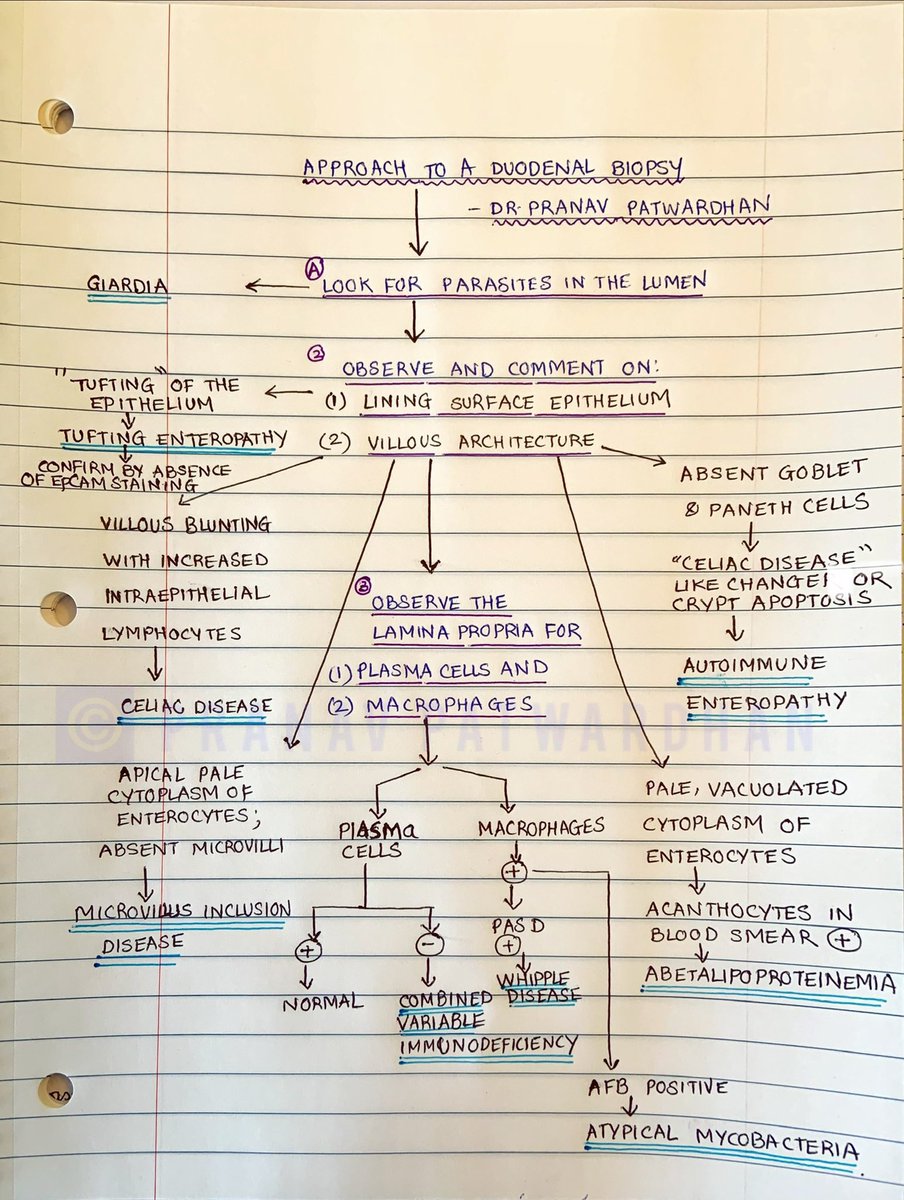 APPROACH TO A DUODENAL BIOPSY
- DR. PRANAV PATWARDHAN
A
LOOK FOR PARASITES IN THE LUMEN
GIARDIA
2
OBSERVE AND COMMENT ON:
(1) LINING SURFACE EPITHELIUM
(2) VILLOUS ARCHITECTURE
"TUFTING" OF THE
EPITHELIUM
TUFTING ENTEROPATHY
CONFIRM BY ABSENCE
OF EPCAM STAINING
VILLOUS BLUNTING
WITH INCREASED
INTRAEPITHELIAL
LYMPHOCYTES
CELIAC DISEASE
ABSENT GOBLET
& PANETH CELLS
"CELIAC DISEASE"
LIKE CHANGES OR
CRYPT APOPTOSIS
AUTOIMMUNE
ENTEROPATHY
3
OBSERVE THE
LAMINA PROPRIA FOR
(1) PLASMA CELLS AND
(2) MACROPHAGES
© PRANAV PATWARDHAN
APICAL PALE
CYTOPLASM OF
ENTEROCYTES;
ABSENT MICROVILLI
MICROVILLUS INCLUSION
DISEASE
PLASMA
CELLS
+
NORMAL
-
COMBINED
VARIABLE
IMMUNODEFICIENCY
MACROPHAGES
+
PAS D
+
WHIPPLE
DISEASE
AFB POSITIVE
ATYPICAL MYCOBACTERIA.
PALE, VACUOLATED
CYTOPLASM OF
ENTEROCYTES
ACANTHOCYTES IN
BLOOD SMEAR +
ABETALIPOPROTEINEMIA